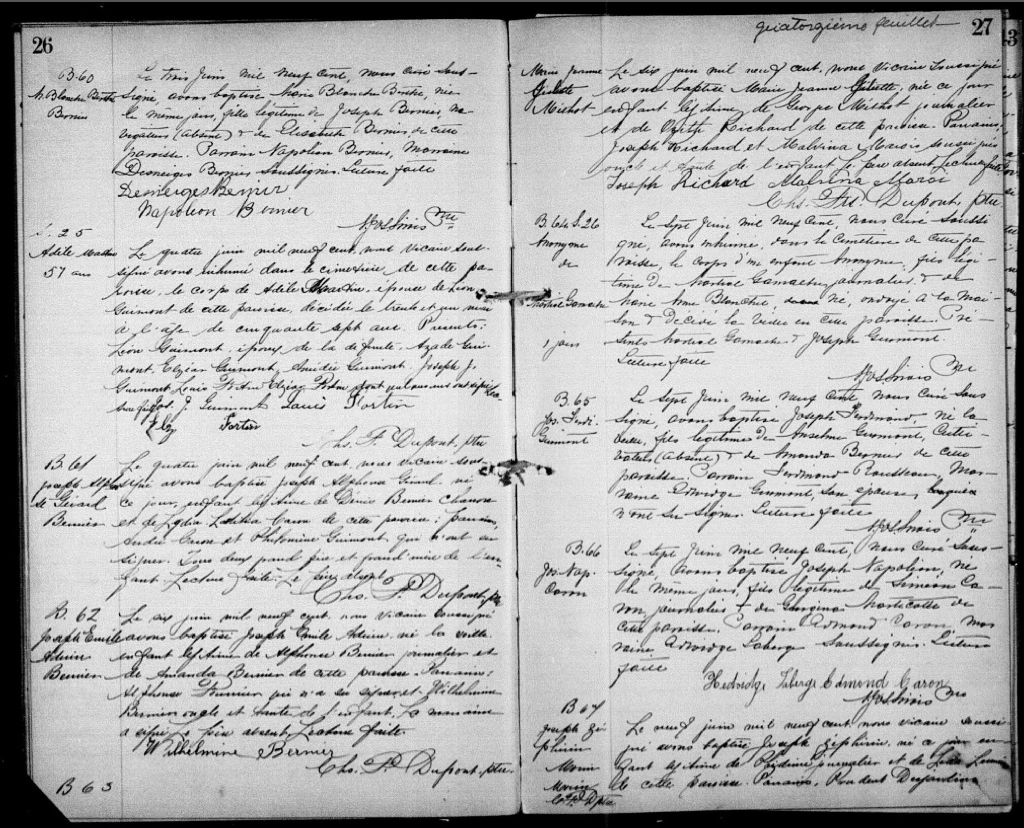 26
B.60
M. Blanche Berthe
Bernier
Le trois juin, mil neuf cent, nous curé sous-
signé, avons baptisé Marie Blanche Berthe, née
le même jour, fille légitime de Joseph Bernier, na-
vigateur, (absent) & de Elisabeth Bernier de cette
paroisse. Parrain Napoléon Bernier, Marraine
Desneiges Bernier Soussignés. Lecture faite
Desneiges Bernier
Napoléon Bernier
S. 25
Adèle
57 ans
Le quatre juin mil neuf cent, nous vicaire sous-
signé avons inhumé dans le cimetière de cette pa-
roisse, le corps de Adèle épouse de Léon
Guimont de cette paroisse, décédée le trente et un mai
à l'âge de cinquante sept ans. Présents:
Léon Guimont, époux de la défunte, Guimont,
Elzéar Guimont, Guimont, Joseph J.
Guimont Louis Fortin Elzéar Fortin dont quelques uns ont signé.
Jos J. Guimont Louis Fortin
Elz Fortin
Chs. F. Dupont, ptre
B. 61
Joseph Alphonse
Gérard
Bernier
Le quatre juin mil neuf cent, nous vicaire sous-
signé avons baptisé Joseph Alphonse Gérard né
ce jour, enfant légitime de Bernier
et de Lydia Caron de cette paroisse; parrains,
André Caron et Philomène Guimont, qui n'ont su
signer. Tous deux grand père et grand'mère de l'en-
fant. Lecture faite. Le père absent
Chs. F. Dupont, ptre
B. 62
Joseph Emile
Adrien
Bernier
Le six juin mil neuf cent, nous vicaire soussigné
avons baptisé Joseph Emile Adrien, né la veille
enfant légitime de Alphonse Bernier journalier et
de Amanda Bernier de cette paroisse. Parrains:
Alphonse Fournier qui n'a su signer et Wilhelmine
Bernier oncle et tante de l'enfant. La marraine
a signé. Le père absent. Lecture faite.
Wilhelmine Bernier
Chs. F. Dupont, ptre
B 63
quatorzième feuillet
27
Marie Jeanne
Michot
Le six juin mil neuf cent, nous vicaire soussigné
avons baptisé Marie Jeanne née ce jour
enfant légitime de George Michot journalier
et de Richard de cette paroisse. Parrains,
Joseph Richard et Malvina Marois soussignés
oncle et tante de l'enfant. Le père absent. Lecture faite
Joseph Richard Malvina Maroi
Chs. F. Dupont, ptre
B. 64 S. 26
Anonyme
de
Martial Gamache
1 jour
Le sept juin, mil neuf cent, nous curé soussi-
gné, avons inhumé, dans le cimetière de cette pa-
roisse, le corps d'un enfant Anonyme, fils légi-
time de Martial Gamache journalier, & de
Marie Anne Blanchet né, ondoyé à la mai-
son & décédé la veille en cette paroisse. Pré-
sents Martial Gamache & Joseph Guimont.
Lecture faite
B. 65
Jos. Ferdi.
Guimont
Le sept juin mil neuf cent, nous curé sous-
signé, avons baptisé Joseph Ferdinand, né la
veille, fils légitime de Anselme Guimont, Culti-
vateur, (absent) & de Amanda Bernier de cette
paroisse. Parrain Ferdinand Rousseau, Mar-
raine Edwidge Guimont, son épouse, lesquels
n'ont su signer. Lecture faite
B. 66
Jos. Nap.
Caron
Le sept juin mil neuf cent, nous curé sous-
signé, avons baptisé Joseph Napoléon, né
le même jour, fils légitime de Siméon Ca-
ron, journalier & de Georgina de
cette paroisse. Parrain Edmond Caron, Mar-
raine Edwidge Laberge Soussignés. Lecture
faite
Hedwidge Laberge Edmond Caron
B 67
Joseph Zé-
phirin
Morin
Le neuf juin mil neuf cent, nous vicaire soussi-
gné avons baptisé Joseph Zéphirin, né ce jour en-
fant légitime de journalier et de
de cette paroisse. Parrains, Prudent Desjardins